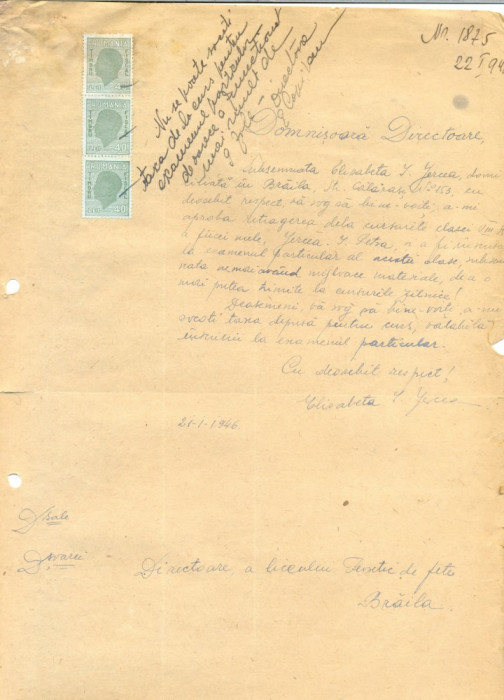 Nr. 1875
22 I 94
Nu se poate socoti
taxa de la curs pentru
examenul particular
de oarece a functionat
mai mult de
9 zile. Directoare
ROMANIA
TIMBRU FISCAL
Domnișoară Directoare,
Subsemnata Elisabeta I. Yercea, domi
ciliată în Brăila, St. Călărași Nº 153, cu
deosebit respect, vă rog să bine-voiți, a-mi
aproba retragerea dela cursurile clasei
a fiicei mele, Yercea I. Petra, a o fi înscri
la examenul particular al acestei clase, subsem
nata nemai având mijloace materiale, de a o
mai putea trimite la cursurile zilnice!
Deasemeni, vă rog să bine-voiți, a-mi
socoti taxa depusă pentru curs, valabilă
înscrierii la examenul particular.
Cu deosebit respect!
Elisabeta I. Yercea
21-1-1946.
D-sale
D-șoarei
Directoare a liceului Teoretic de fete
Brăila.